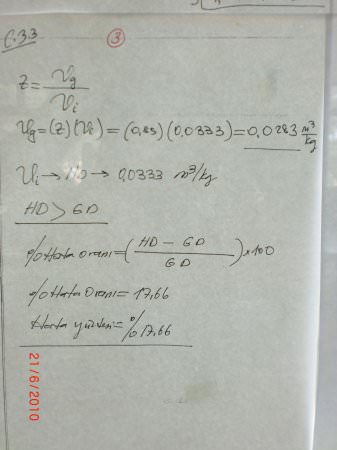 C.33
3
Z = Vg / Vi
Vg = (Z)(Vi) = (0,85)(0,0333) = 0,0283 m³/kg
Vi → HD → 0,0333 m³/kg
HD > GD
% Hata oranı = (HD - GD / GD) x 100
% Hata Oranı = 17,66
Hata yüzdesi = % 17,66
21/6/2010